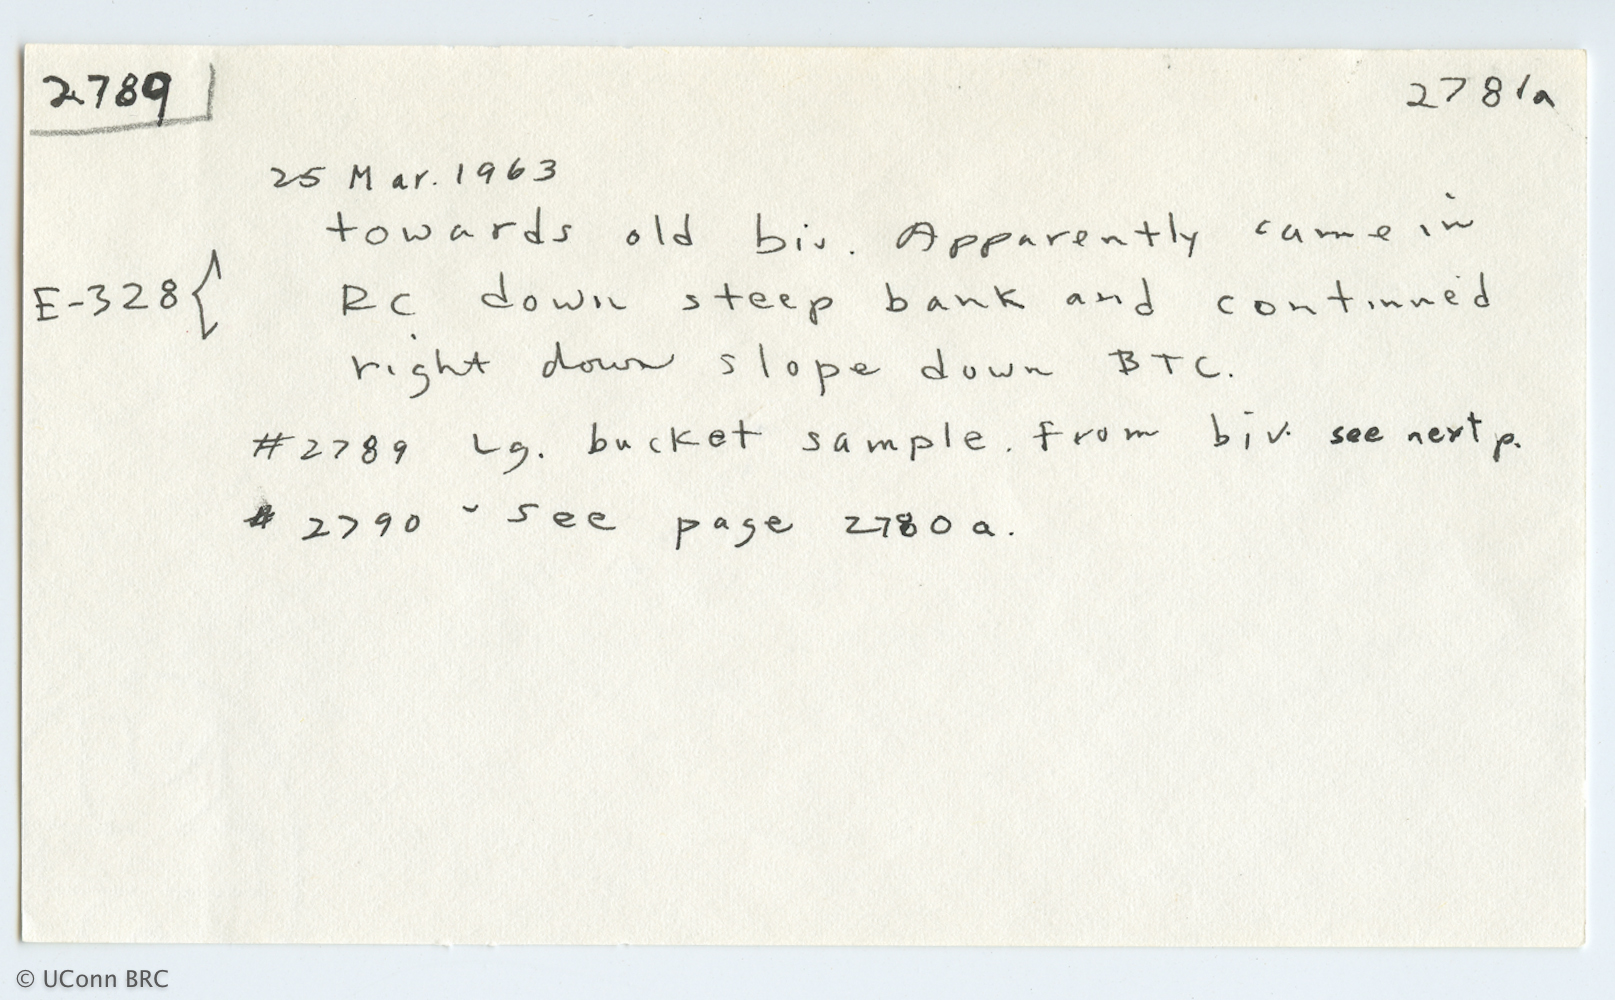 2789
2781a
25 Mar. 1963
towards old biv. Apparently came in
E-328 { RC down steep bank and continued
right down slope down BTC.
#2789 Lg. bucket sample. From biv. see next p.
#2790 - See page 2780a.
© UConn BRC